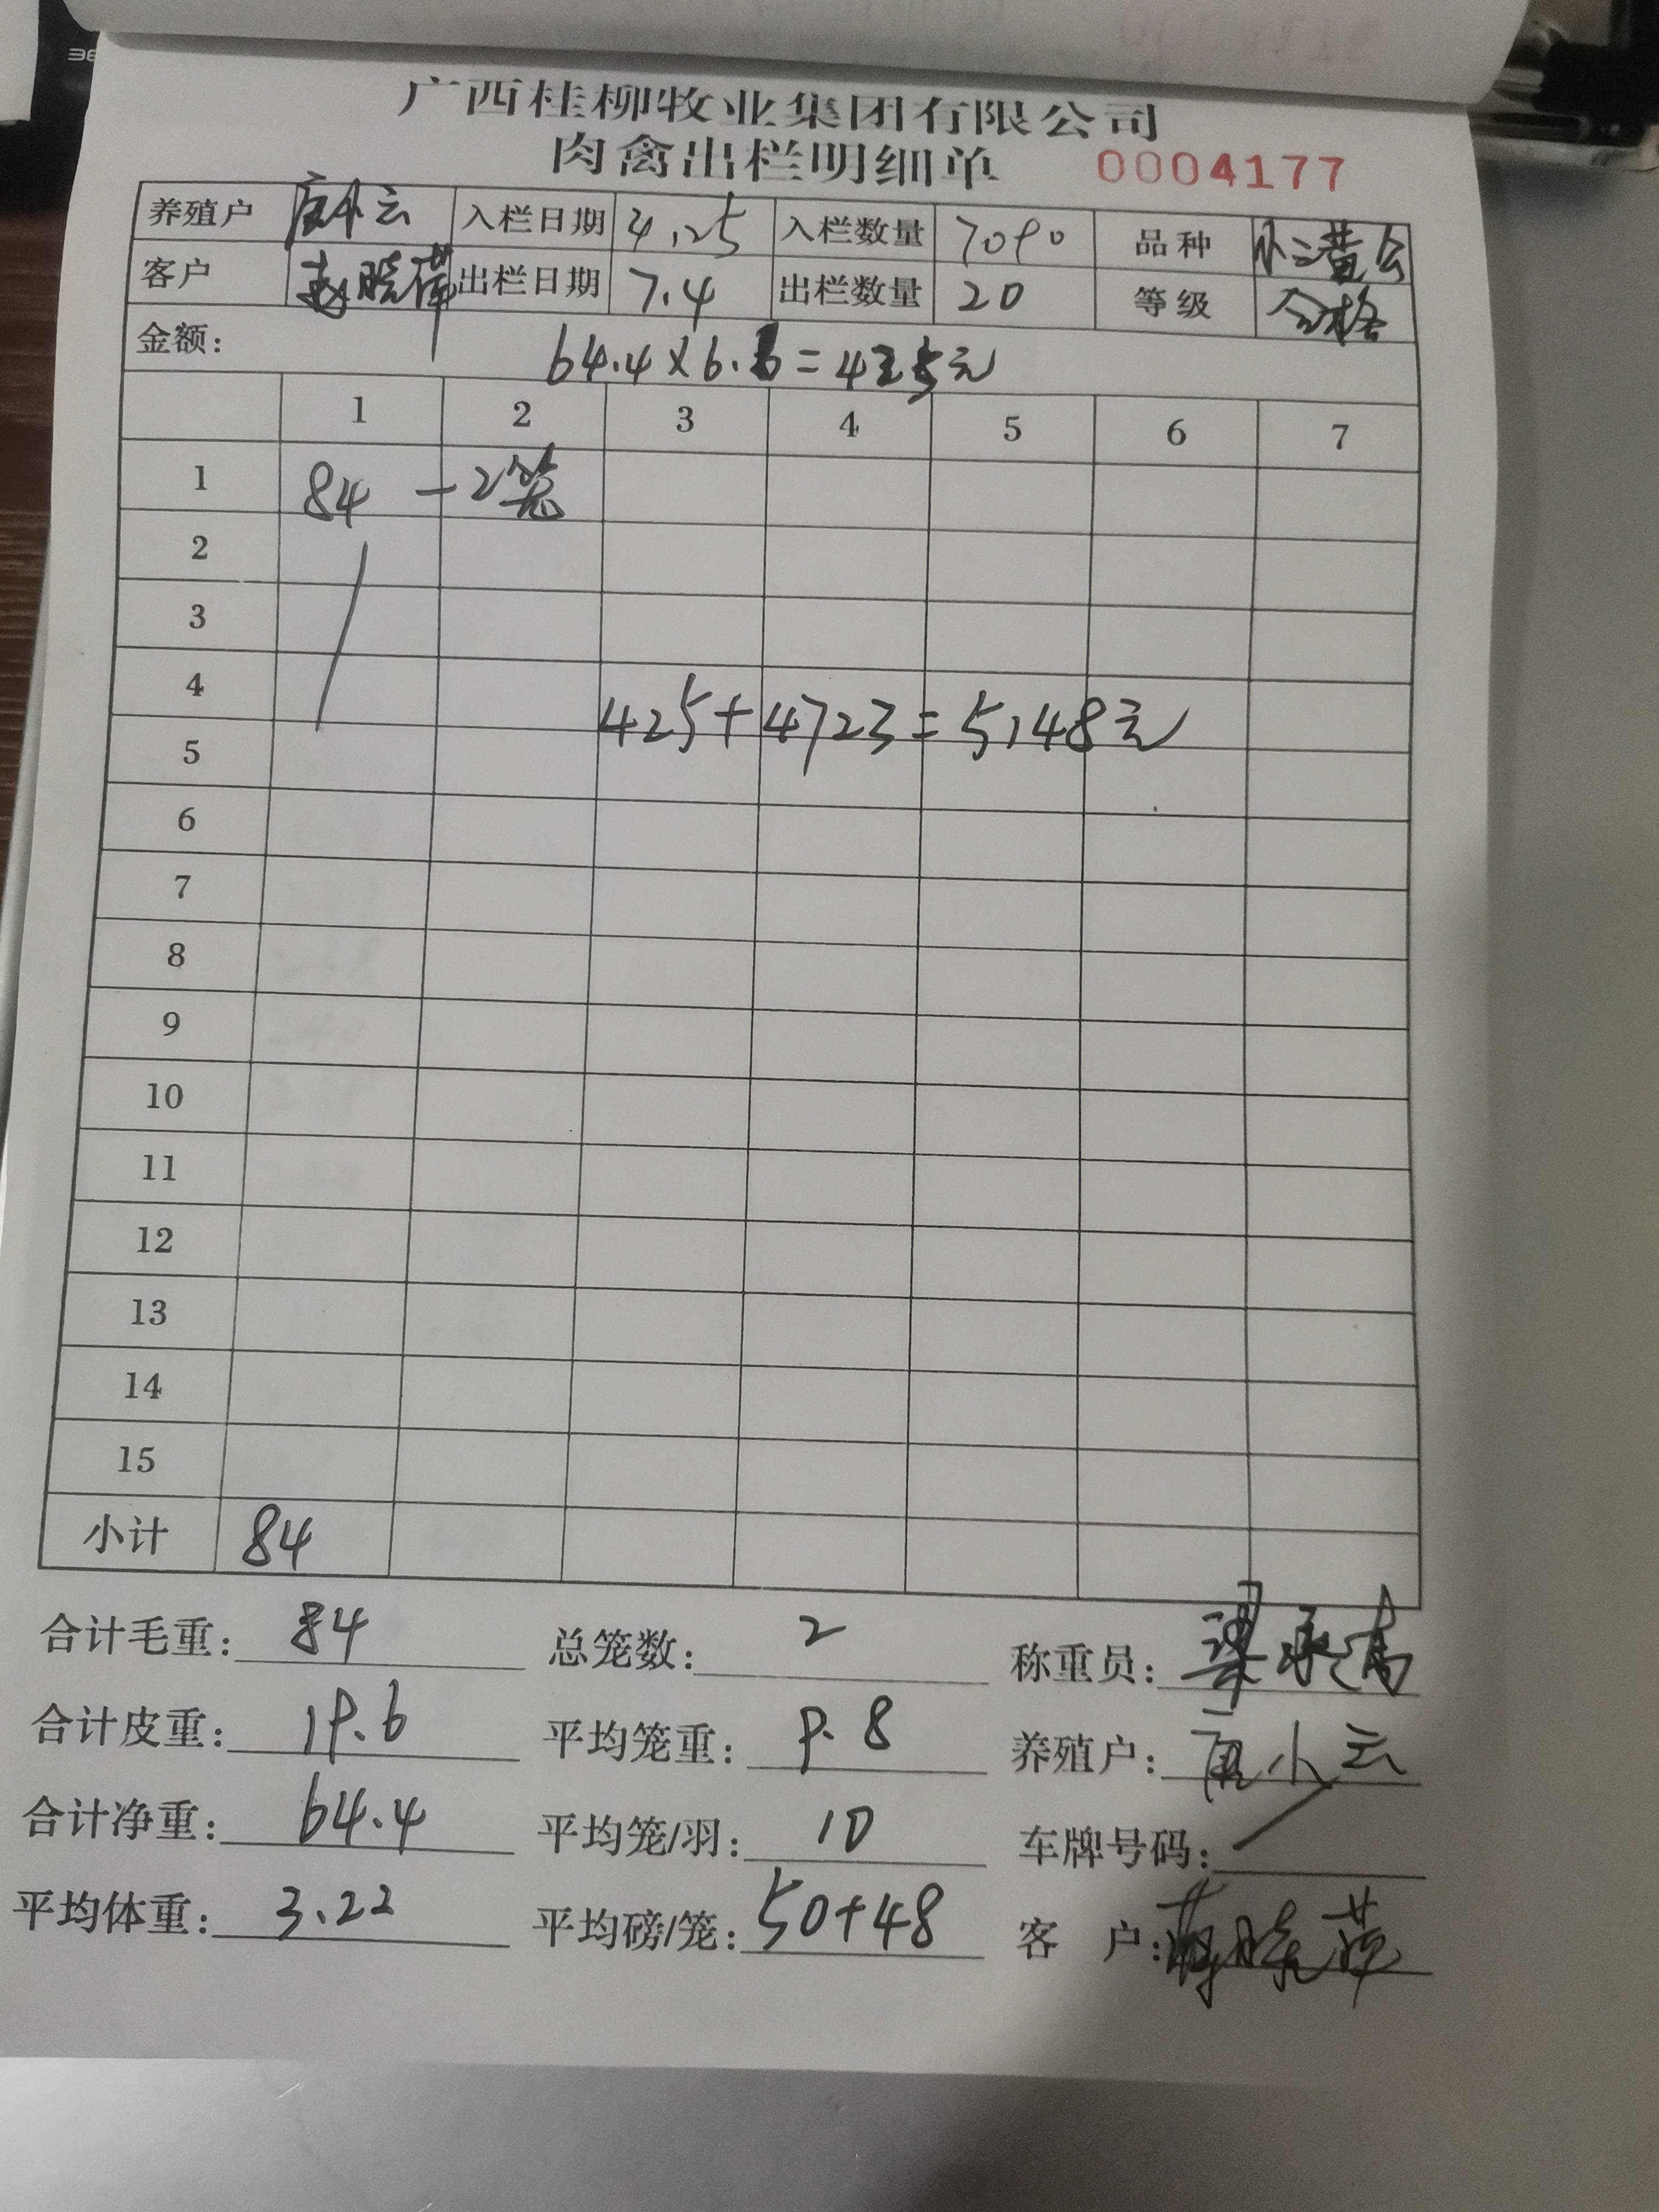 广西桂柳牧业集团有限公司
肉禽出栏明细单 0004177
养殖户 唐小云 入栏日期 4.25 入栏数量 7090 品种 小二黄公
客户 晓萍 出栏日期 7.4 出栏数量 20 等级 合格
金额: 64.4×6.6=425元
1 2 3 4 5 6 7
1 84 -2笼
2
3
4
425+4723=5148元
5
6
7
8
9
10
11
12
13
14
15
小计 84
合计毛重: 84 总笼数: 2 称重员: 梁承
合计皮重: 19.6 平均笼重: 9.8 养殖户: 唐小云
合计净重: 64.4 平均笼/羽: 10 车牌号码:
平均体重: 3.22 平均磅/笼: 50+48 客 户: 晓萍